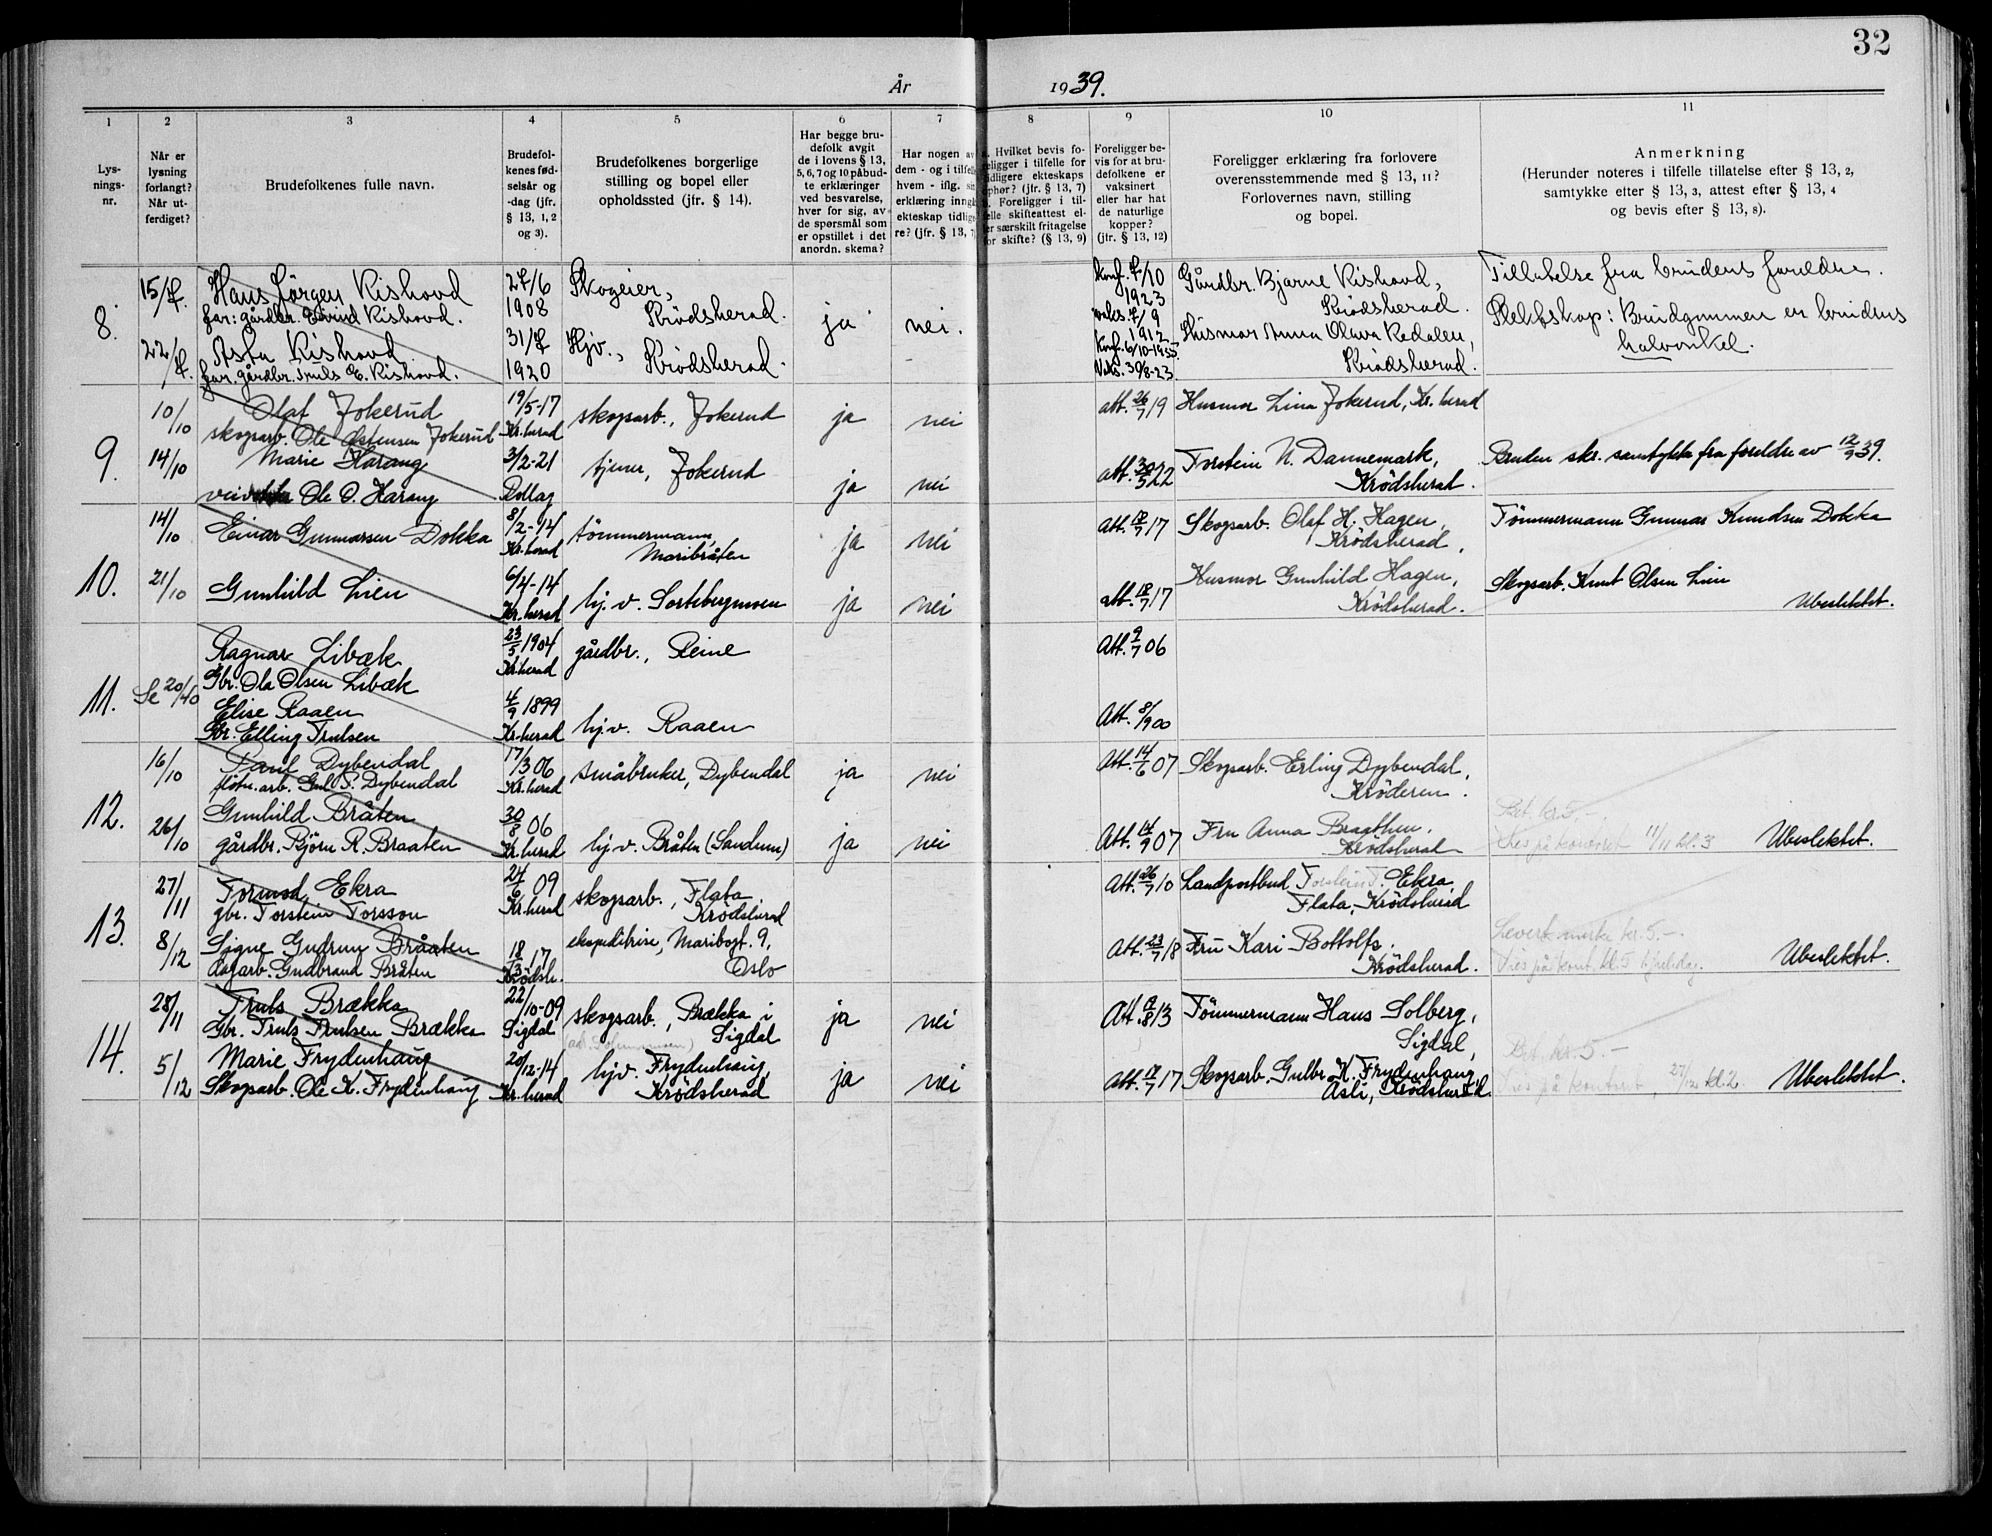 32
År 1939.
1 2 3 4 5 6 7 8 9 10 11
Lys-
nings-
nr.
Når er
lysning
forlangt?
Når ut-
ferdiget?
Brudefolkenes fulle navn.
Brudefol-
kenes fød-
selsår og
-dag (jfr.
§ 13, 1, 2
og 3).
Brudefolkenes borgerlige
stilling og bopel eller
opholdssted (jfr. § 14).
Har begge bru-
defolk avgit
de i lovens § 13,
5, 6, 7 og 10 påbud-
te erklæringer
ved besvarelse,
hver for sig, av
de spørsmål som
er opstillet i det
anordn. skema?
Har nogen av
dem - og i tilfelle
hvem - iflg. sin
erklæring inngå
ekteskap tidlige
re? (jfr. § 13, 7
Hvilket bevis fo-
religger i tilfelle for
tidligere ekteskaps
ophør? (jfr. § 13, 7)
Foreligger i til-
felle skifteattest el-
er særskilt fritagelse
for skifte? (§ 13, 9)
Foreligger be-
vis for at bru-
defolkene er
vaksinert
eller har hat
de naturlige
kopper?
(jfr. § 13, 12)
Foreligger erklæring fra forlovere
overensstemmende med § 13, 11?
Forlovernes navn, stilling
og bopel.
Anmerkning
(Herunder noteres i tilfelle tillatelse efter § 13, 2,
samtykke efter § 13, 3, attest efter § 13, 4
og bevis efter § 13, 8).
8.
15/7. Hans Jörgen Kishovd 27/6 Skogeier, Konf. 7/10 Gårdbr. Bjarne Kishovd, Tillatelse fra brudens foreldre.
far: gårdbr. Eivind Kishovd. 1908 Krödsherad. ja nei. 1923 Krödsherad.
22/7. Asta Kishovd 31/7 Hjv., 7/9 1912 Husmor Anna Olava Redalen, Slektskap: Brudgommen er brudens
far. gårdbr. Truls E. Kishovd. 1920 Krödsherad. Konf. 6/10-1935 Vaks. 30/8-23. Krödsherad. halvonkel.
9.
10/10 Olaf Jokerud 19/5-17 skogsarb., Jokerud ja nei att. 26/7 19 Husmor Lina Jokerud, Kr. herad
skogsarb. Ole Østensen Jokerud Kr. herad
14/10 Marie Harang 3/2-21 tjener, Jokerud att. 30/5 22 Torstein N. Dannemark, Bruden skr. samtykke fra foreldre av 12/9 39.
Ole O. Harang Rollag ja nei Krödsherad.
10.
14/10 Einar Gunnarsen Dokka 8/2-14 tömmermann, ja nei att. 18/7 17 Skogsarb. Olaf H. Hagen, Tömmermann Gunnar Knudsen Dokka
Kr. herad Maribråten Krödsherad,
21/10 Gunhild Lien 6/4-14 Husmor Gunhild Hagen, Skogsarb. Knut Olsen Lien
Kr. herad hj. v. Sortebergmoen ja nei att. 18/7 17 Krödsherad. Ubeslektet.
11.
Ragnar Libæk 23/5 1904 gårdbr., Reine Att. 9/7 06
Gbr. Ola Olsen Libæk Kr. herad
Se 20/40
Elise Raaen 4/9 1899 hj. v. Raaen Att. 8/9 00
Gbr. Elling Trulsen Kr. herad
12.
16/10 Paul Dybendal 17/3 06 småbruker, Dybendal ja nei Att. 14/6 07 Skogsarb. Erling Dybendal,
fløtn. arb. Gul P. Dybendal Kr. herad Kröderen.
Gunhild Bråten 30/8 06 Bet. kr. 5.-
26/10 gårdbr. Björn R. Braaten Kr. herad hj. v. Bråten (Sandum) ja nei Att. 14/9 07 Fru Anna Braathen, Vies på kontoret 11/11 kl. 3 Ubeslektet.
Krödsherad
13.
27/11 Tormod Ekra 24/6 09 skogsarb., Flata, Att. 26/7 10 Landpostbud Torstein T. Ekra
gbr. Torstein Torsson Kr. herad Krödsherad Flata, Krödsherad
8/12 Signe Gudrun Bråaten 18/3 17 ekspeditrise, Maribogt. 9, Att. 23/7 18 Fru Kari Bottolfs. Levert merke kr. 5.-
dagarb. Gudbrand Bråten Krödsh. Oslo Krödsherad. Vies på kont. kl. 5 Ubeslektet.
14.
28/11 Truls Brækka 22/10-09 skogsarb., Brækka i ja nei Att. 18/8 13 Tömmermann Hans Solberg,
Gbr. Truls Trulsen Brækka Sigdal Sigdal Sigdal,
5/12 Marie Frydenhaug 20/12-14 hj v. Frydenhaug, ja nei att. 18/7 17 Skogsarb. Gulbr. K. Frydenhaug, Bet. kr. 5.-
Skogsarb. Ole K. Frydenhaug Kr. herad Krödsherad Åsli, Krödsherad. Vies på kontoret 27/12 kl. 2 Ubeslektet.